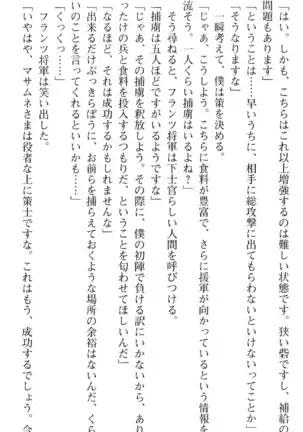 「はい。しかも、こちらはこれ以上増強するのは難しい状態です。狭い砦ですし、補給の
問題もあります」
「ということは……早いうちに、相手に総攻撃に出てもらわないといけないってことか」
「そうなりますな」
一瞬考えて、僕は策を決める。
「じゃあ、こうしよう。こちらに食料が豊富で、さらに援軍が向かっているという情報を
流そう。人くらい捕虜はいるよね？」
そう尋ねると、フランツ将軍は下士官らしい人間を呼びつける。
「捕虜は五人ほどですがいるようですな」
「じゃあ、その捕虜を釈放しよう。その際に、僕の初陣で負ける訳にいかないから、あり
ったけの兵と食料を投入するつもりだ、ということを匂わせてほしいんだ」
「なるほど、それは成功するかもしれませんな」
「出来るだけぶっきらぼうに、お前らを捕らえておくような場所の余裕はないんだ、くら
いのことを言ってくれるといいかも……」
「くっくっ……」
フランツ将軍は笑い出した。
「いやはや、マサムネさまは役者な上に策士ですな。これはもう、成功するでしょう。今